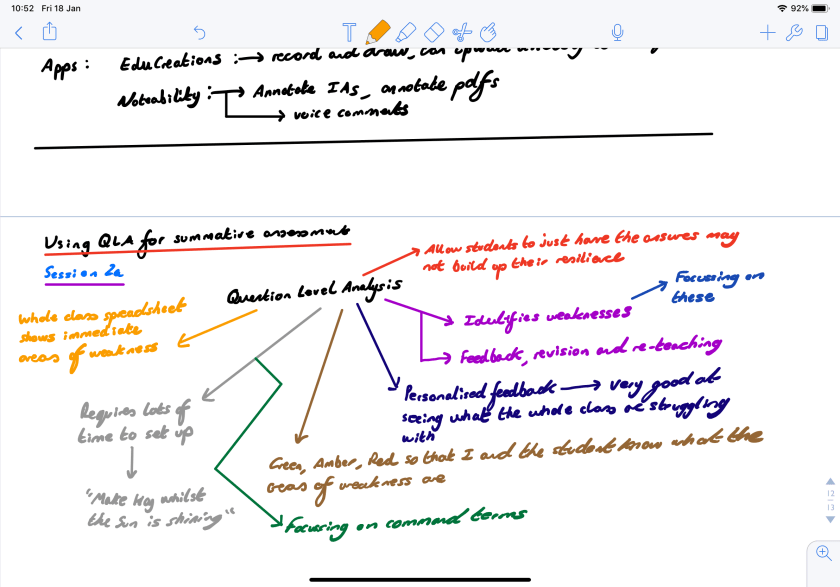 10:52 Fri 18 Jan
92%
Apps : EduCreations : → record and draw, can upload
Notability : → Annotate IAs, annotate pdfs
→ voice comments
Using QLA for summative assessment
Session 2a
Question Level Analysis
Allow students to just have the answers may
not build up their resilience
Focussing on
these
Identifies weaknesses
Feedback, revision and re-teaching
Whole class spreadsheet
shows immediate
areas of weakness
Personalised feedback → very good at
seeing what the whole class are struggling
with
Requires lots of
time to set up
"Make Hay whilst
the Sun is shining"
Green, Amber, Red so that I and the student know what the
areas of weakness are
Focussing on command terms
12
13